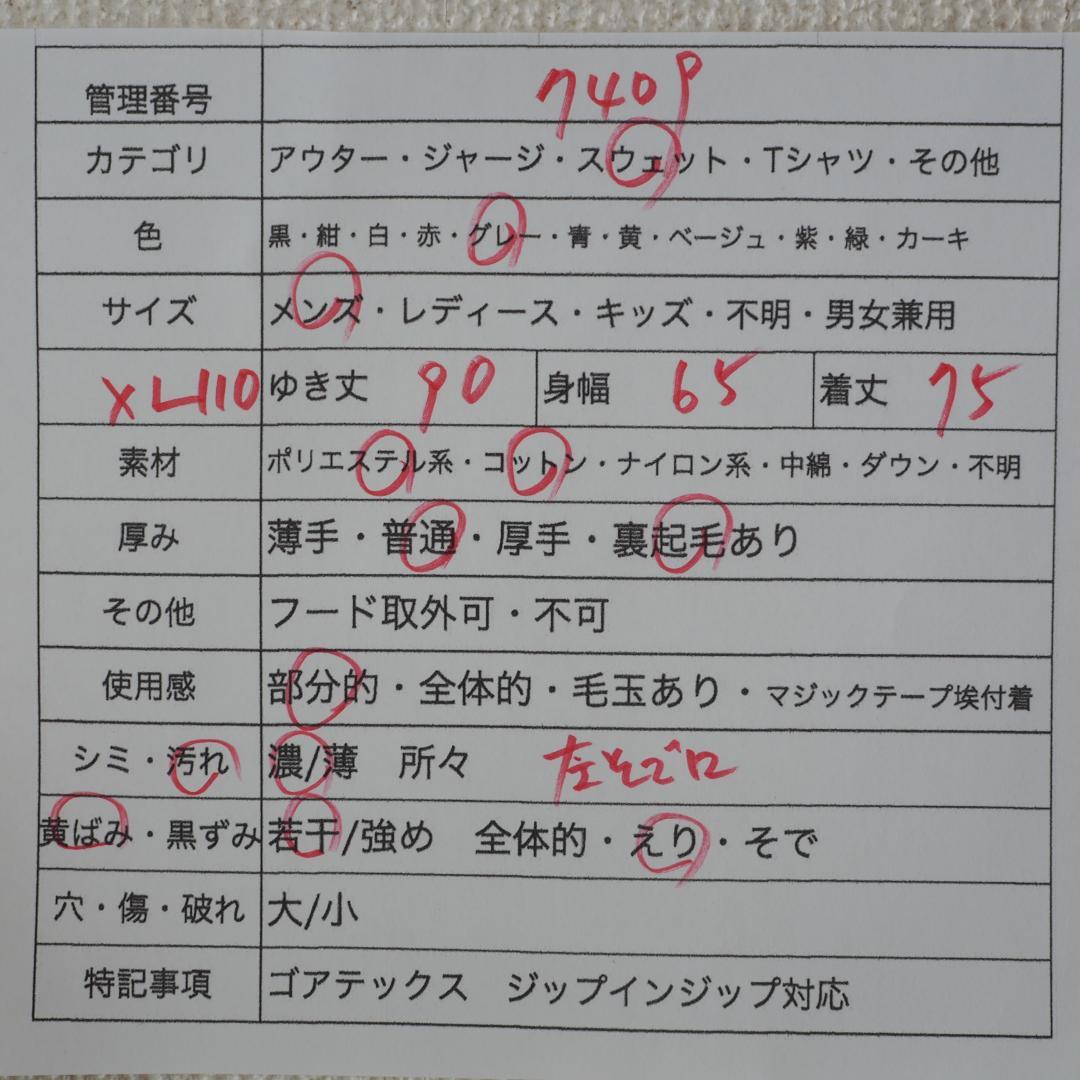 管理番号 7409
カテゴリ アウター・ジャージ・スウェット・Tシャツ・その他
色 黒・紺・白・赤・グレー・青・黄・ベージュ・紫・緑・カーキ
サイズ メンズ・レディース・キッズ・不明・男女兼用
XL110 ゆき丈 90 身幅 65 着丈 75
素材 ポリエステル系・コットン・ナイロン系・中綿・ダウン・不明
厚み 薄手・普通・厚手・裏起毛あり
その他 フード取外可・不可
使用感 部分的・全体的・毛玉あり・マジックテープ埃付着
シミ・汚れ 濃/薄 所々 左そで口
黄ばみ・黒ずみ 若干/強め 全体的・えり・そで
穴・傷・破れ 大/小
特記事項 ゴアテックス ジップインジップ対応